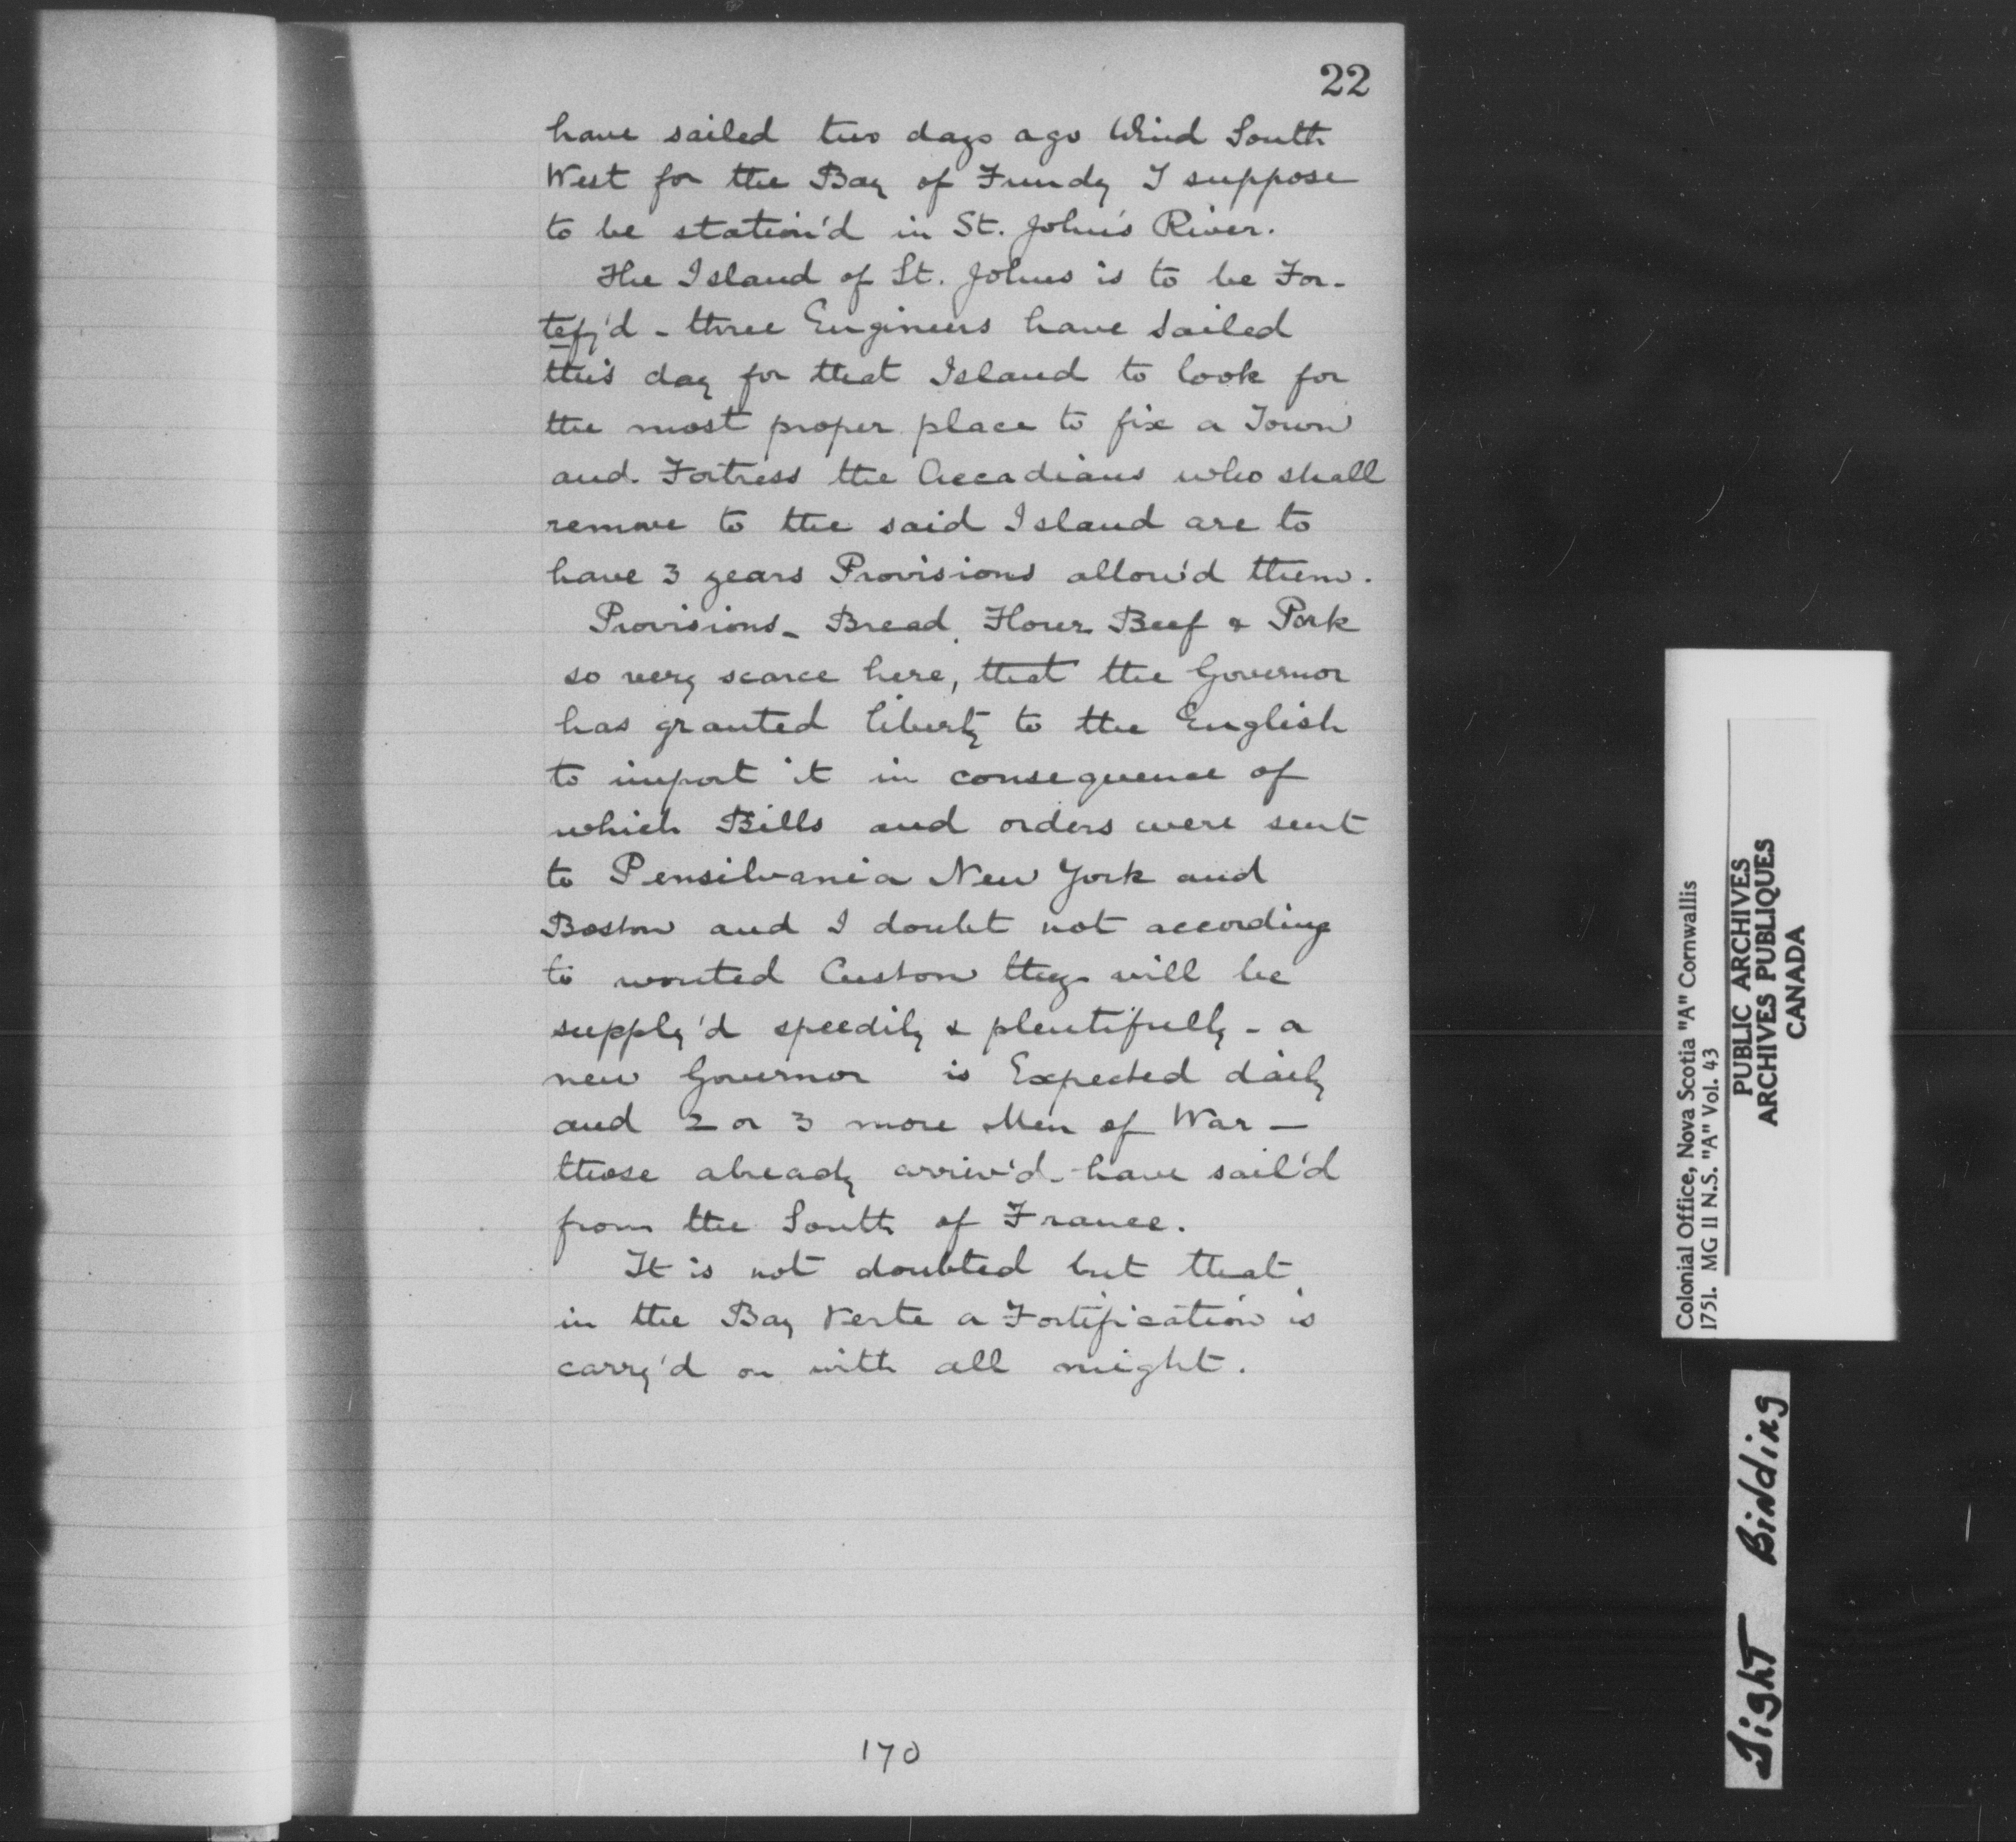 22
have sailed two days ago Wind South
West for the Bay of Fundy I suppose
to be station'd in St. John's River.
The Island of St. Johns is to be For-
tefy'd - three Engineers have sailed
this day for that Island to look for
the most proper place to fix a Town
and Fortress the Accadians who shall
remove to the said Island are to
have 3 years Provisions allow'd them.
Provisions - Bread, Flour Beef & Pork
so very scarce here, that the Governor
has granted liberty to the English
to import it in consequence of
which Bills and orders were sent
to Pensilvania New York and
Boston and I doubt not according
to wonted Custom they will be
supply'd speedily & plentifully - a
new Governor is Expected daily
and 2 or 3 more Men of War -
those already arriv'd have sail'd
from the South of France.
It is not doubted but that
in the Bay Verte a Fortification is
carry'd on with all might.
170
Colonial Office, Nova Scotia "A" Cornwallis
1751. MG 11 N.S. "A" Vol. 43
PUBLIC ARCHIVES
ARCHIVES PUBLIQUES
CANADA
Tight Binding